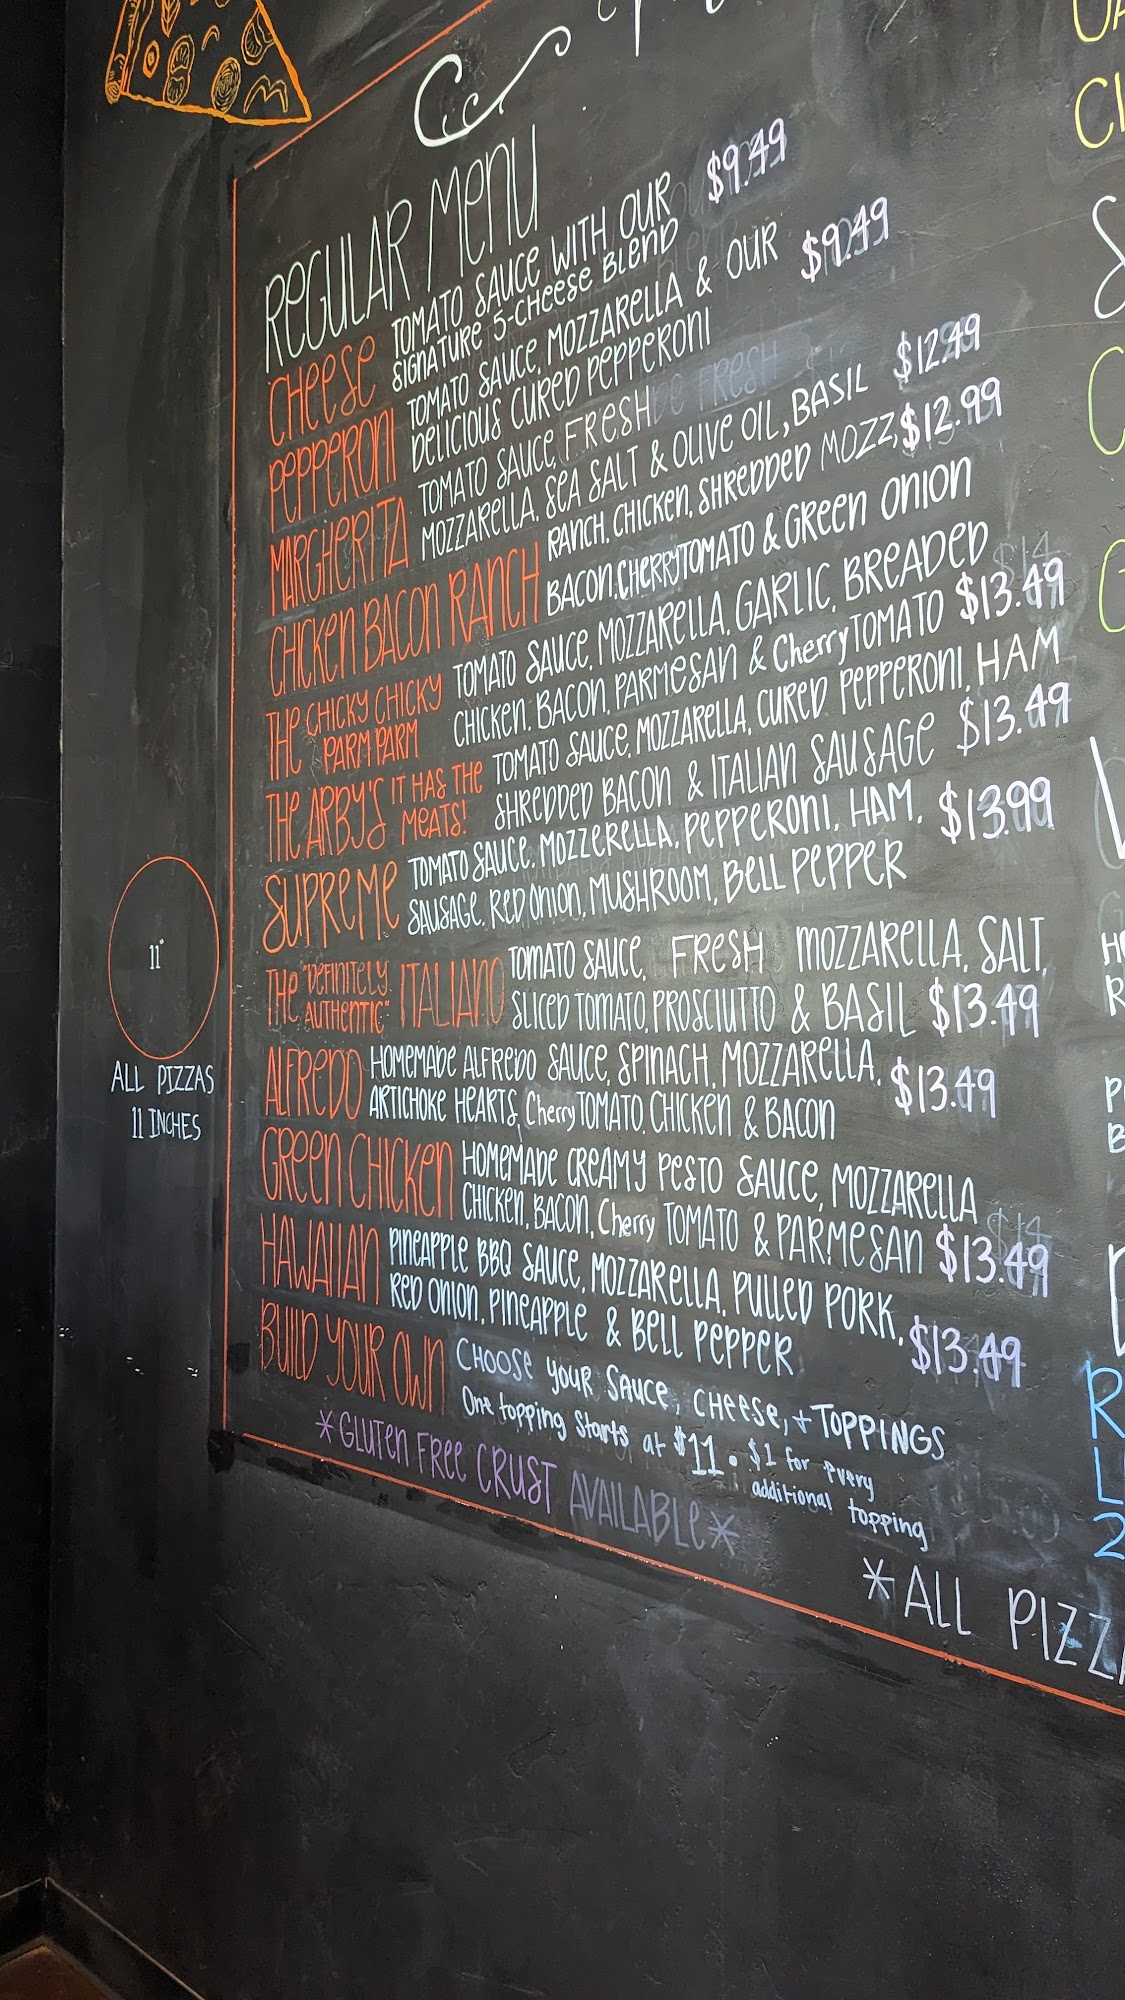 REGULAR MENU
CHEESE TOMATO SAUCE WITH OUR $9.49
SIGNATURE 5-CHEESE BLEND
PEPPERONI TOMATO SAUCE, MOZZARELLA & OUR $9.49
DELICIOUS CURED PEPPERONI
MARGHERITA TOMATO SAUCE, FRESH
MOZZARELLA, SEA SALT & OLIVE OIL, BASIL $12.49
CHICKEN BACON RANCH RANCH, CHICKEN, SHREDDED MOZZ, $12.99
BACON, CHERRY TOMATO & GREEN ONION
THE CHICKY CHICKY PARM PARM TOMATO SAUCE, MOZZARELLA, GARLIC, BREADED
CHICKEN, BACON, PARMESAN & Cherry TOMATO $13.49
THE ARBY'S IT HAS THE MEATS! TOMATO SAUCE, MOZZARELLA, CURED PEPPERONI, HAM
SHREDDED BACON & ITALIAN SAUSAGE $13.49
SUPREME TOMATO SAUCE, MOZZERELLA, PEPPERONI, HAM, $13.99
SAUSAGE, RED ONION, MUSHROOM, BELL PEPPER
THE "DEFINITELY AUTHENTIC" ITALIANO TOMATO SAUCE, FRESH MOZZARELLA, SALT,
SLICED TOMATO, PROSCIUTTO & BASIL $13.49
ALFREDO HOMEMADE ALFREDO SAUCE, SPINACH, MOZZARELLA, $13.49
ARTICHOKE HEARTS, Cherry TOMATO, CHICKEN & BACON
GREEN CHICKEN HOMEMADE CREAMY PESTO SAUCE, MOZZARELLA
CHICKEN, BACON, Cherry TOMATO & PARMESAN $13.49
HAWAIIAN PINEAPPLE BBQ SAUCE, MOZZARELLA, PULLED PORK, $13.49
RED ONION, PINEAPPLE & BELL PEPPER
BUILD YOUR OWN CHOOSE YOUR SAUCE, CHEESE, + TOPPINGS
One topping starts at $11. $1 for every
additional topping
*GLUTEN FREE CRUST AVAILABLE*
*ALL PIZZ
11"
ALL PIZZAS
11 INCHES